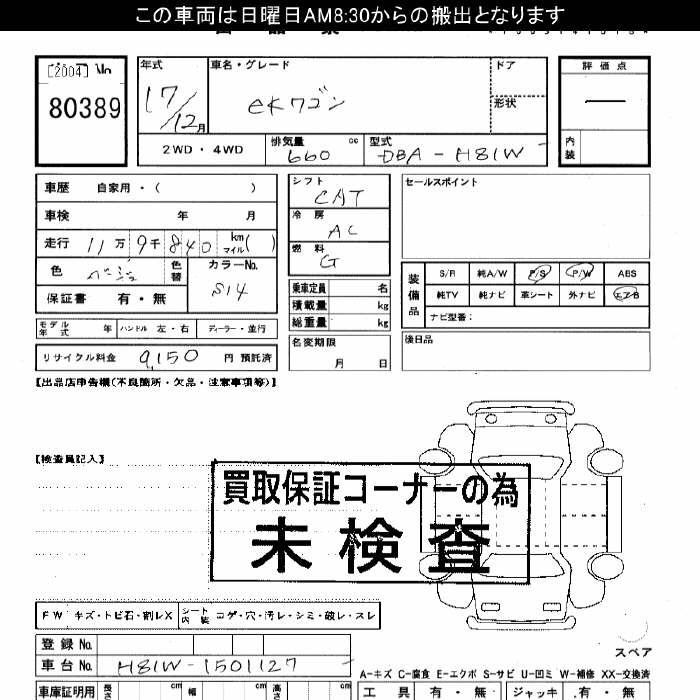 この車両は日曜日AM8:30からの搬出となります
[2004] No
80389
年式
17/12月
車名・グレード
eKワゴン
ドア
形状
2WD・4WD
排気量 660 cc
型式 DBA-H81W
評価点
―
内装
車歴 自家用・( )
車検 年 月
走行 11万9千840 km マイル( )
色 ベージュ 色替
カラーNo. S14
保証書 有・無
シフト CAT
冷房 AC
燃料 G
乗車定員 名
積載量 kg
総重量 kg
セールスポイント
装備品
S/R 純A/W P/S P/W ABS
純TV 純ナビ 革シート 外ナビ エアB
ナビ型番:
モデル年式 年 ハンドル 左・右 ディーラー・並行
リサイクル料金 9,150 円 預託済
名変期限
月 日
後日品
【出品店申告欄(不良箇所・欠品・注意事項等)】
【検査員記入】
買取保証コーナーの為
未検査
FW キズ・トビ石・割レX シート内装 コゲ・穴・汚レ・シミ・破レ・スレ
登録No.
車台No. H81W-1501127
スペア
A-キズ C-腐食 E-エクボ S-サビ U-凹ミ W-補修 XX-交換済
車庫証明用 長さ cm 幅 cm 高さ cm
工具 有・無 ジャッキ 有・無